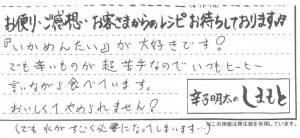 お便り・ご感想・お客さまからのレシピお待ちしております♪
『いかめんたい』が大好きです!
でも辛いものが超苦手なのでいつもヒーヒー
言いながら食べています。
おいしくてやめられません!
辛子明太のしまもと
(でも水がすごく必要になってしまいます…)
■この用紙は再生紙を利用しています。